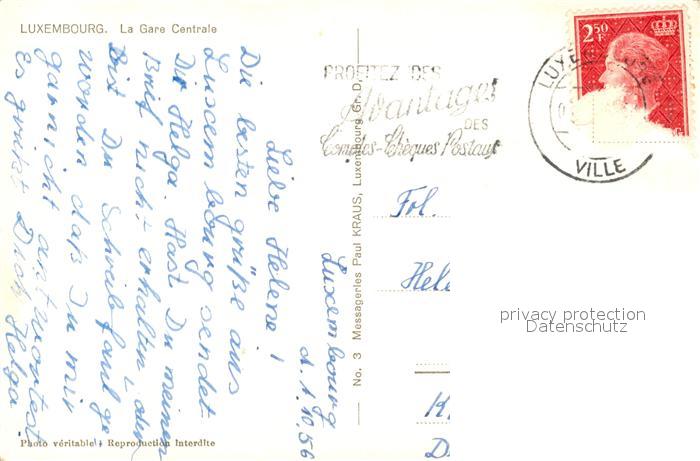 LUXEMBOURG. La Gare Centrale
Luxembourg
d. 1.10.56
Liebe Helene!
Die besten grüße aus
Luxembourg sendet
Dir Helga. Hast Du meinen
Brief nicht erhalten oder
bist Du Schreibfaul ge
worden daß Du mir
garnicht antwortest
Es grüßt Dich Helga
Photo véritable - Reproduction interdite
No. 3 Messageries Paul KRAUS, Luxembourg Gr. D.
PROFITEZ DES
Avantages
DES
Comptes-Chèques Postaux
2.50
F
VILLE
Fol.
Hele
K
D
privacy protection
Datenschutz